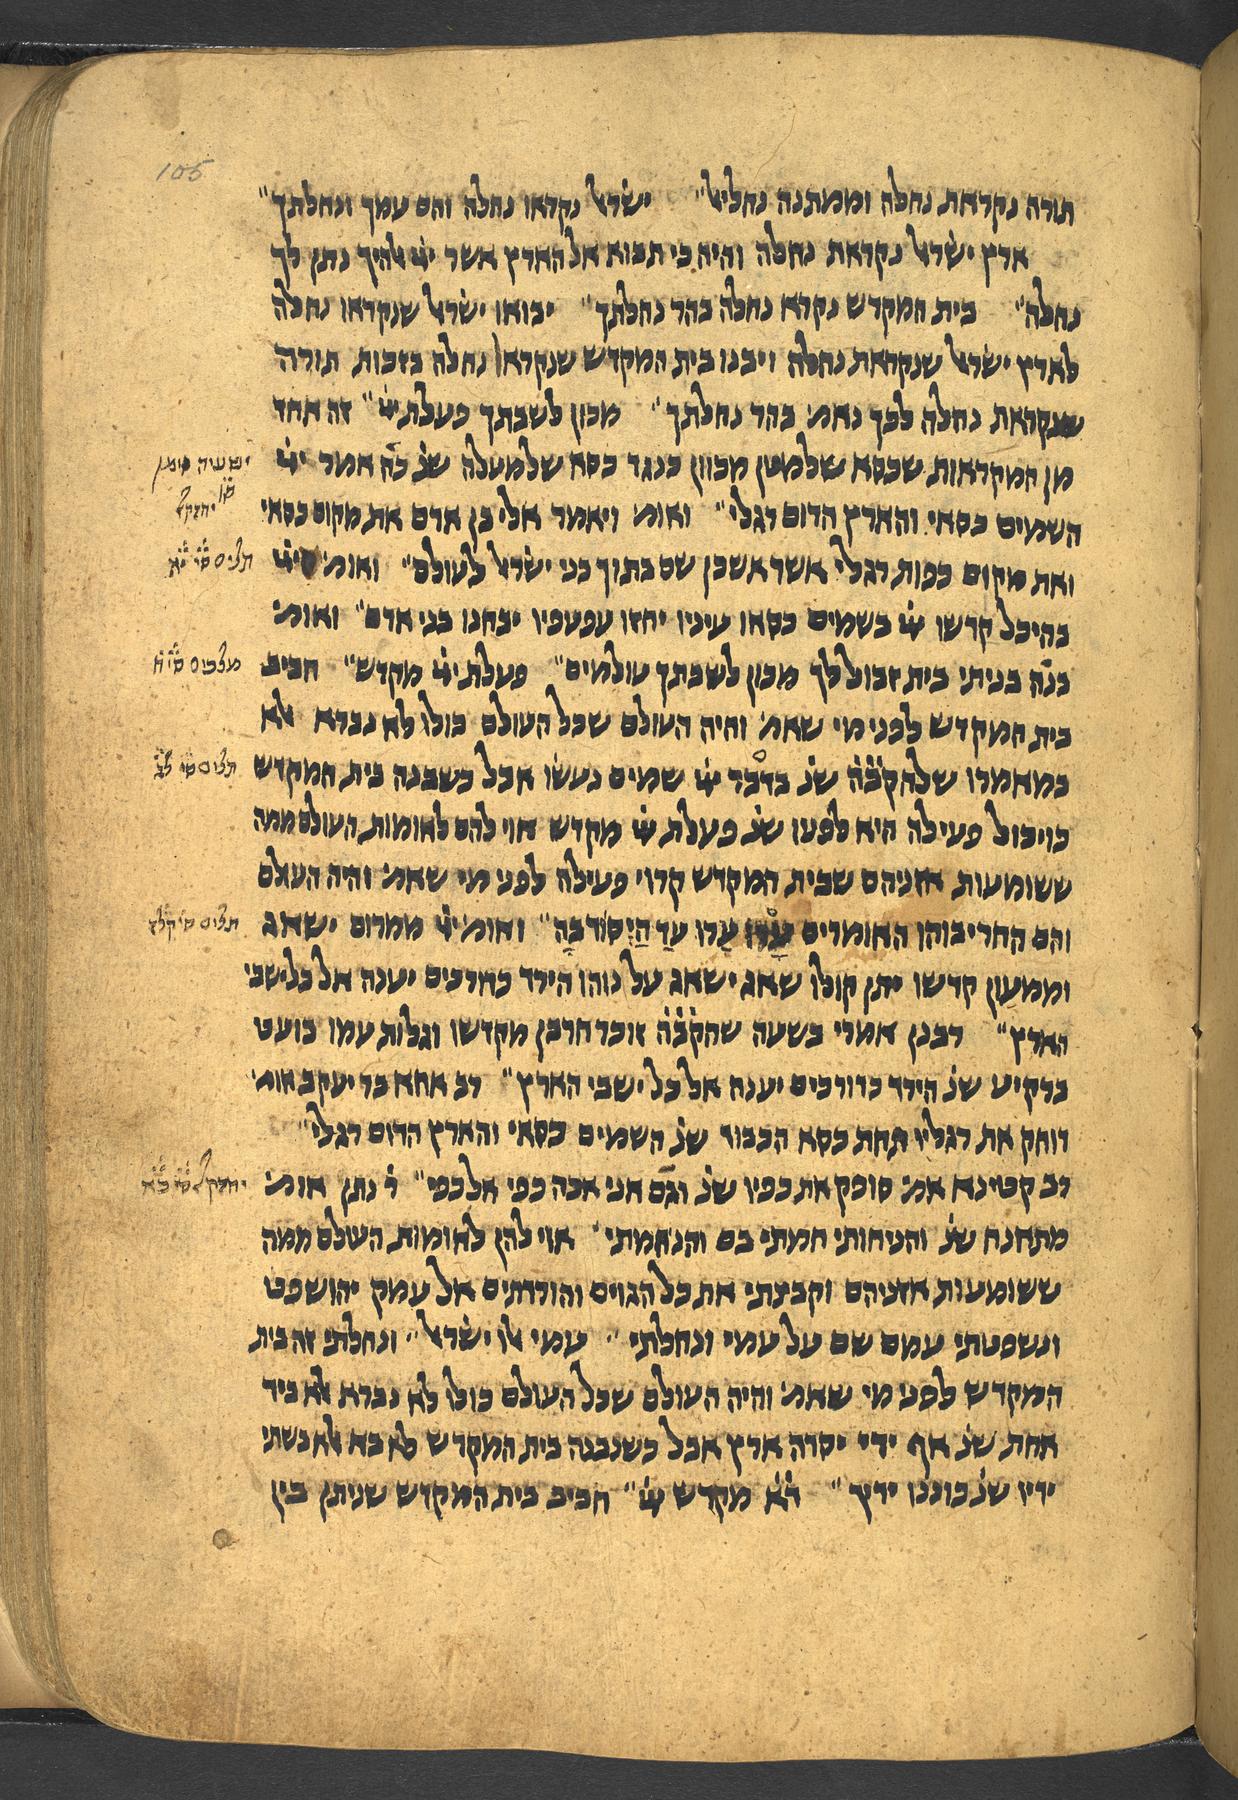 105
תורה נקראת נחלה וממתנה נחליאל" ישראל נקראו נחלה והם עמך ונחלתך"
ארץ ישראל נקראת נחלה והיה כי תבוא אל הארץ אשר ייי אלהיך נתן לך
נחלה" בית המקדש נקרא נחלה בהר נחלתך" יבואו ישראל שנקראו נחלה
לארץ ישראל שנקראת נחלה ויבנו בית המקדש שנקרא נחלה בזכות תורה
שנקראת נחלה לכך נאמ' בהר נחלתך" מכון לשבתך פעלת ייי" זה אחד
מן המקראות שכסא שלמטן מכוון כנגד כסא שלמעלה שנ' כה אמר ייי
ישעיה סימן
השמים כסאי והארץ הדום רגלי" ואומ' ויאמר אלי בן אדם את מקום כסאי
יחזקל
ואת מקום כפות רגלי אשר אשכן שם בתוך בני ישראל לעולם" ואומ' ייי
תלים סי' יא
בהיכל קדשו ייי בשמים כסאו עיניו יחזו עפעפיו יבחנו בני אדם" ואומ'
בנה בניתי בית זבול לך מכון לשבתך עולמים" פעלת ייי מקדש" חביב
מלכים סי' ח
בית המקדש לפני מי שאמ' והיה העולם שכל העולם כולו לא נברא אלא
במאמרו שלהקבה שנ' בדבר ייי שמים נעשו אבל כשבנה בית המקדש
תלים סי' לג
כויכול פעילה היא לפניו שנ' פעלת ייי מקדש אוי להם לאומות העולם ממה
ששומעות אזניהם שבית המקדש קרוי פעילה לפני מי שאמ' והיה העולם
והם החריבוהו האומרים ערו ערו עד היסוד בה" ואומ' ייי ממרום ישאג
תלים סי' קלז
וממעון קדשו יתן קולו שאג ישאג על נוהו הידד כדרכים יענה אל כל ישבי
הארץ" רבנן אמרי בשעה שהקבה זוכר חרבן מקדשו וגלות עמו בועט
ברקיע שנ' הידד כדורכים יענה אל כל ישבי הארץ" רב אחא בר יעקב אומ'
דוחק את רגליו תחת כסא הכבוד שנ' השמים כסאי והארץ הדום רגלי"
רב קטינא אמ' סופק את כפיו שנ' וגם אני אכה כפי אל כפי" ר' נתן אומ'
יחזקל סי' כא
מתחנח שנ' והניחותי חמתי בם והנחמתי" אוי להן לאומות העולם ממה
ששומעות אזניהם וקבצתי את כל הגוים והורדתים אל עמק יהושפט
ונשפטתי עמם שם על עמי ונחלתי" עמי אלו ישראל" ונחלתי זה בית
המקדש לפני מי שאמ' והיה העולם שכל העולם כולו לא נברא אלא ביד
אחת שנ' אף ידי יסדה ארץ אבל כשנבנה בית המקדש לא בא אלא בשתי
ידיו שנ' כוננו ידיך" דא מקדש ייי" חביב בית המקדש שניתן בין